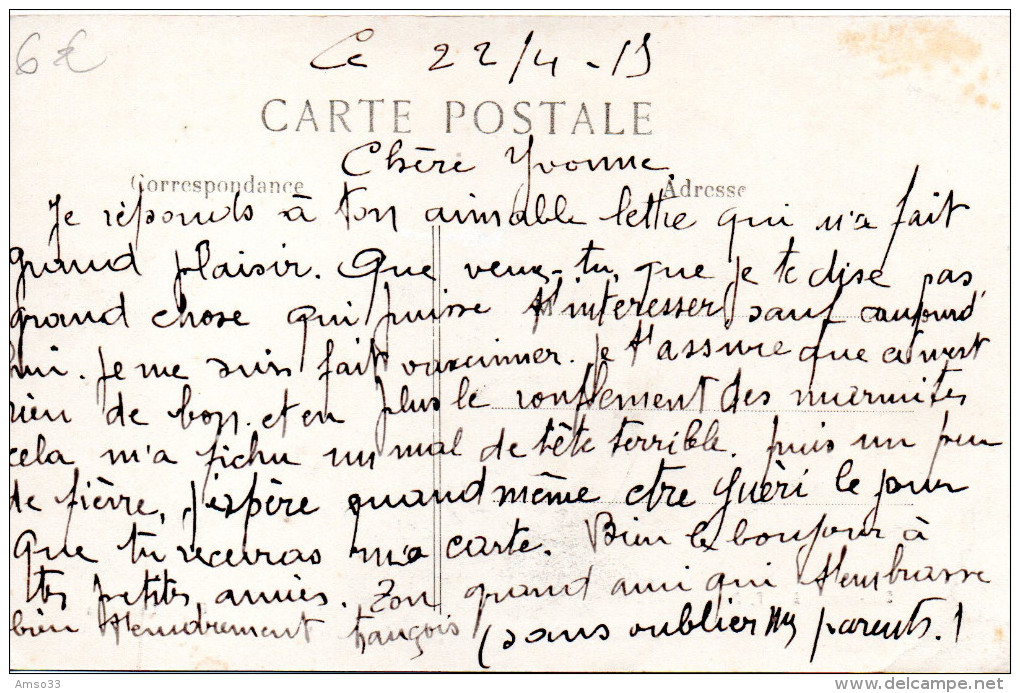 6€
Ce 22/4-15
CARTE POSTALE
Chère Yvonne
Correspondance
Adresse
Je réponds à ton aimable lettre qui m'a fait
grand plaisir. Que veux-tu, que je te dise pas
grand chose qui puisse t'interesser, sauf aujourd'
hui. Je me suis fait vaccinner. Je t'assure que ce n'est
rien de bon. et en plus le ronflement des marmites
cela m'a fichu un mal de tête terrible. puis un peu
de fièvre, j'espère quand même etre guèri le jour
que tu recevras ma carte. Bien le bonjour à
tes petites amies. Ton grand ami qui t'embrasse
bien tendrement françois (sans oublier tes parents.)
Amso33
www.delcampe.net